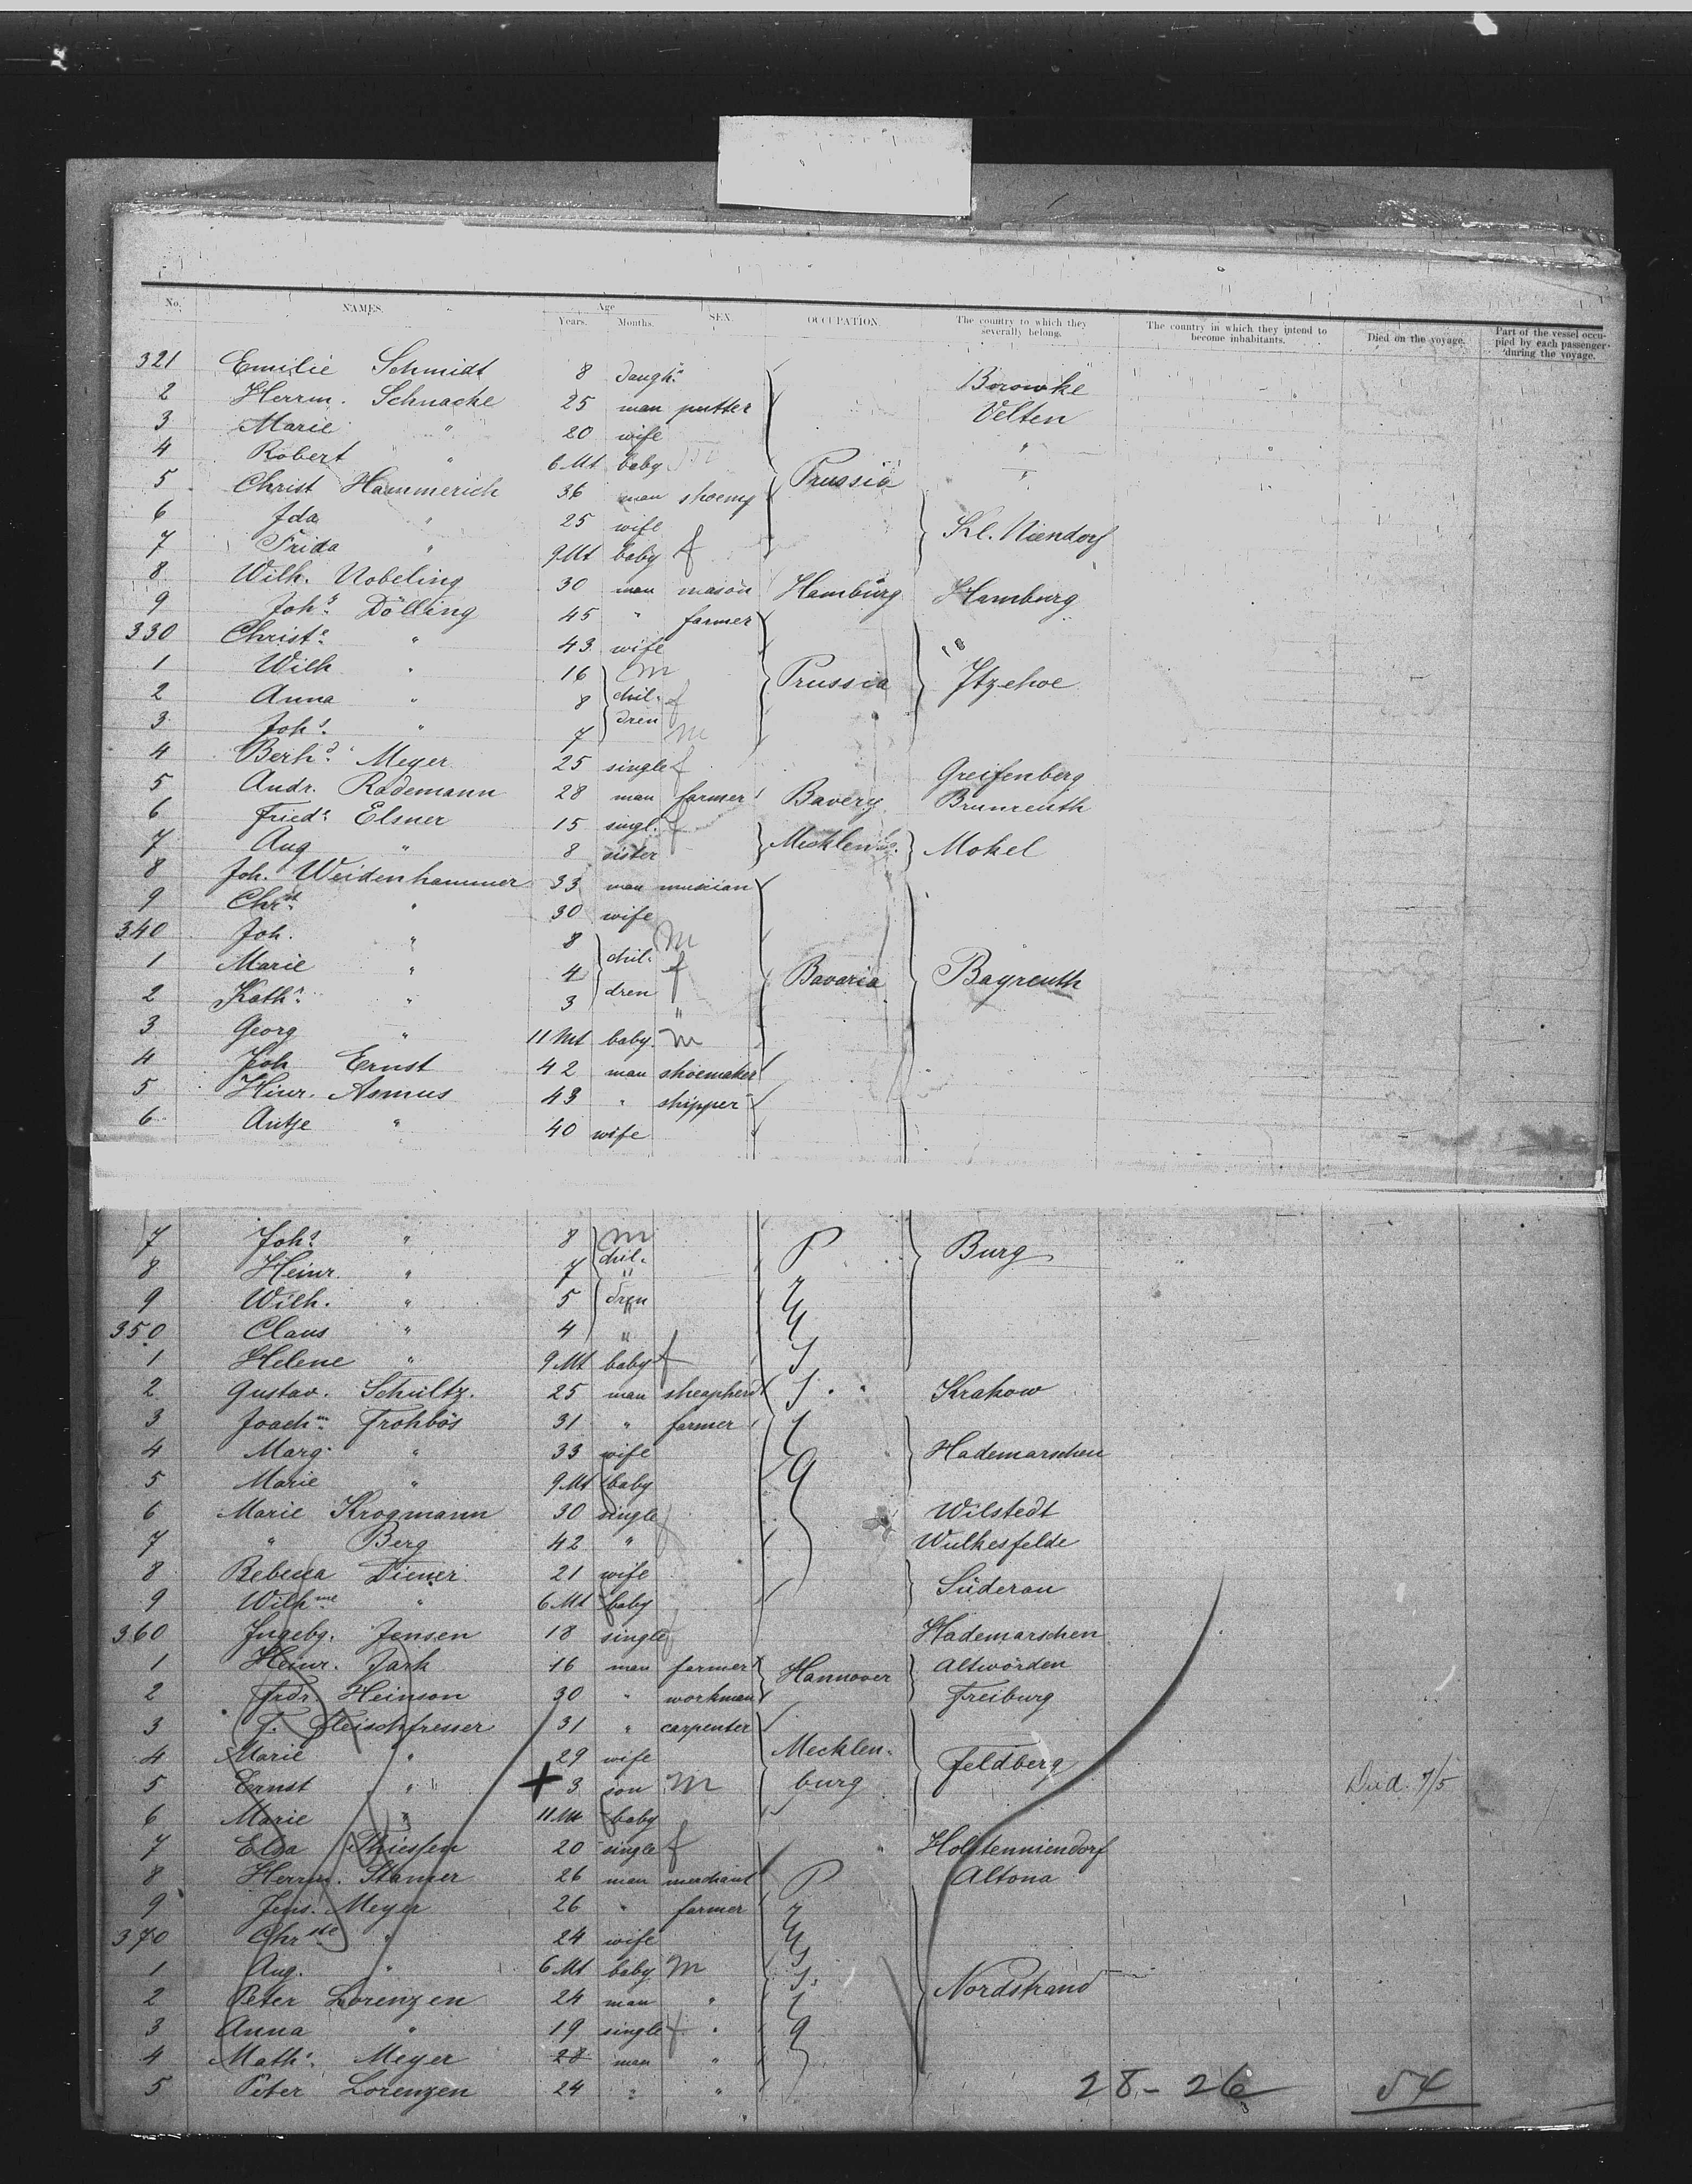 No. NAMES. Age Years. Months. SEX. OCCUPATION. The country to which they severally belong. The country in which they intend to become inhabitants. Died on the voyage. Part of the vessel occupied by each passenger during the voyage.
321 Emilie Schmidt 8 Daugh.r Borowke
2 Herrm. Schnacke 25 man putter Velten
3 Marie " 20 wife "
4 Robert " 6 Mt baby "
5 Christ Hammerich 36 man shoemg Prussia
6 Ida " 25 wife Kl. Niendorf
7 Frida " 9 Mt baby f
8 Wilh. Nobeling 30 man mason Hamburg Hamburg
9 Joh.s Dölling 45 " farmer
330 Christ.e " 43 wife "
1 Wilh " 16 m Prussia Itzehoe
2 Anna " 8 chil- f
3 Joh.s " 7 dren m
4 Berh.d Meyer 25 single f Greifenberg
5 Andr. Rademann 28 man farmer Bavery Brunreuth
6 Fried.e Elsner 15 singl. f
7 Aug " 8 sister Mecklenbg. Mokel
8 Joh. Weidenhammer 33 man musician
9 Chr.st " 30 wife
340 Joh. " 8 m
1 Marie " 4 chil- f Bavaria Bayreuth
2 Kath.e " 3 dren "
3 Georg " 11 Mt baby m
4 Joh Ernst 42 man shoemaker
5 Hinr. Asmus 43 " shipper
6 Antje " 40 wife
7 Joh.s " 8 m P Burg
8 Heinr. " 7 chil- "
9 Wilh. " 5 dren "
350 Claus " 4 "
1 Helene " 9 Mt baby f
2 Gustav. Schultz. 25 man sheapherd Krakow
3 Joach.m Frohbös 31 " farmer
4 Marg. " 33 wife Hademarschen
5 Marie " 9 Mt baby
6 Marie Krogmann 30 single f Wilstedt
7 " Berg 42 " Wulkesfelde
8 Rebecca Diener 21 wife Süderau
9 Wilh.me " 6 Mt baby
360 Ingebg. Jensen 18 single f Hademarschen
1 Heinr. Jark 16 man farmer Hannover Altwörden
2 Frdr. Heinson 30 " workman Freiburg
3 F. Fleischfresser 31 " carpenter
4 Marie " 29 wife Mecklen- Feldberg
5 Ernst " + 3 son M burg Died 7/5
6 Marie " 11 Mt baby
7 Elsa Thiessen 20 single f Holstenniendorf
8 Herrm. Stamer 26 man merchant P Altona
9 Jens. Meyer 26 " farmer
370 Chr.ste " 24 wife
1 Aug. " 6 Mt baby M Nordstrand
2 Peter Lorenzen 24 man "
3 Anna " 19 single f "
4 Math.s Meyer 28 man "
5 Peter Lorenzen 24 " "
28 - 26 54